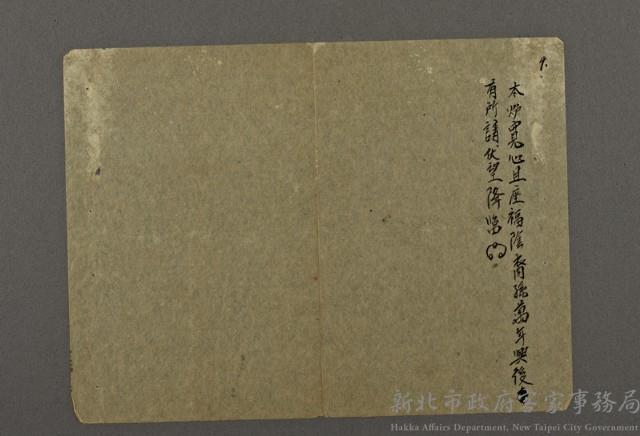 9.
本炉寬心且座福陰裔孫萬年興後
有所請伏望降臨
新北市政府客家事務局
Hakka Affairs Department, New Taipei City Government